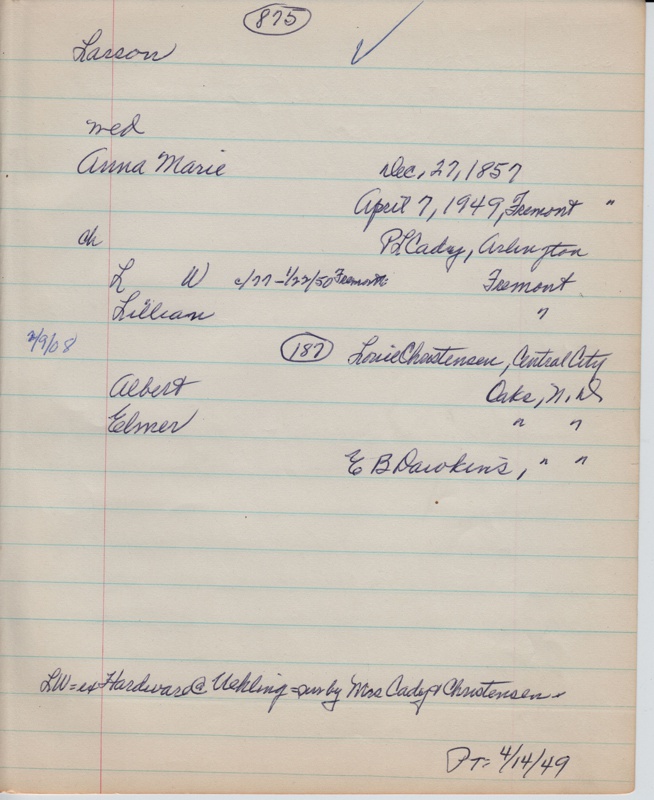 875
Larson
med
Anna Marie Dec, 27, 1857
April 7, 1949, Fremont "
ch P.L. Cady, Arlington
L W c/77 - 1/22/50 Fremont Fremont
Lillian "
2/9/08 187 Louie Christensen, Central City
Albert Oaks, N. D
Elmer " "
E B Dawkins, " "
LW = ex Hardward @ Uehling = sur by Mrs Cady & Christensen
PT = 4/14/49